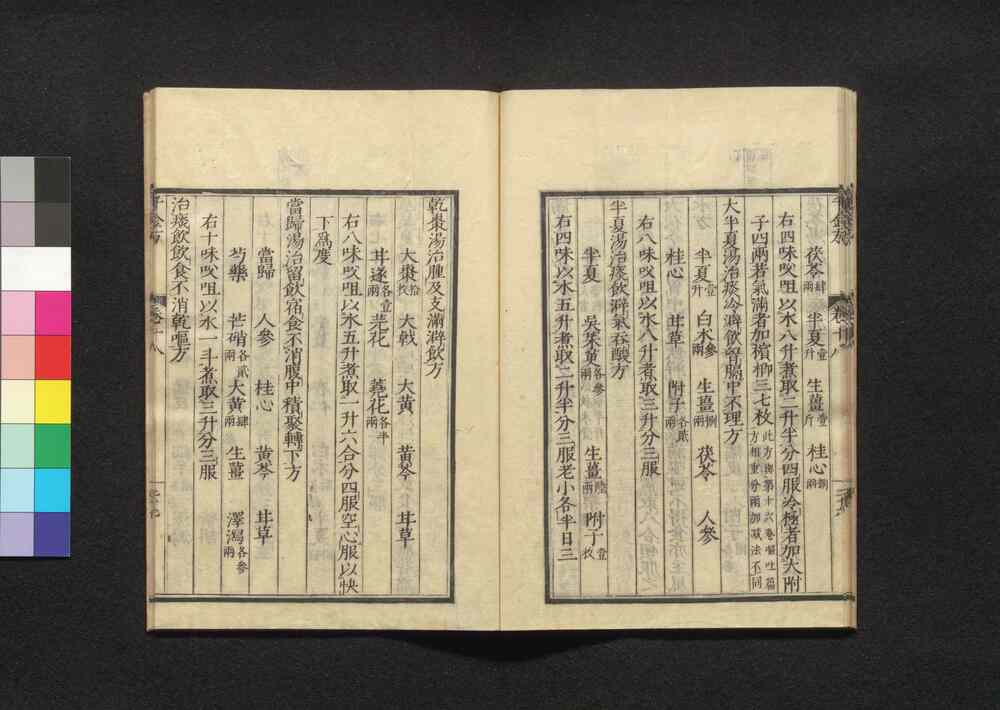 茯苓肆兩 半夏壹升 生薑壹斤 桂心捌兩
右四味㕮咀以水八升煮取二升半分四服冷極者加大附
子四兩若氣滿者加檳榔三七枚此方與第十六卷嘔吐篇方相重分兩加減法不同
大半夏湯治痰冷澼飲胷膈中不理方
半夏壹升 白朮參兩 生薑捌兩 茯苓 人參
桂心 甘草 附子各貳兩
右八味㕮咀以水八升煮取三升分三服
半夏湯治痰飲澼氣吞酸方
半夏 吳茱萸各參兩 生薑陸兩 附子壹枚
右四味以水五升煮取二升半分三服老小各半日三
千金方
卷十八
乾棗湯治腫及支滿澼飲方
大棗拾枚 大戟 大黃 黃芩 甘草
甘遂各壹兩 芫花 蕘花各半兩
右八味㕮咀以水五升煮取一升六合分四服空心服以快
下爲度
當歸湯治留飲宿食不消腹中積聚轉下方
當歸 人參 桂心 黃芩 甘草
芍藥 芒硝各貳兩 大黃肆兩 生薑 澤瀉各參兩
右十味㕮咀以水一斗煮取三升分三服
治痰飲飲食不消乾嘔方